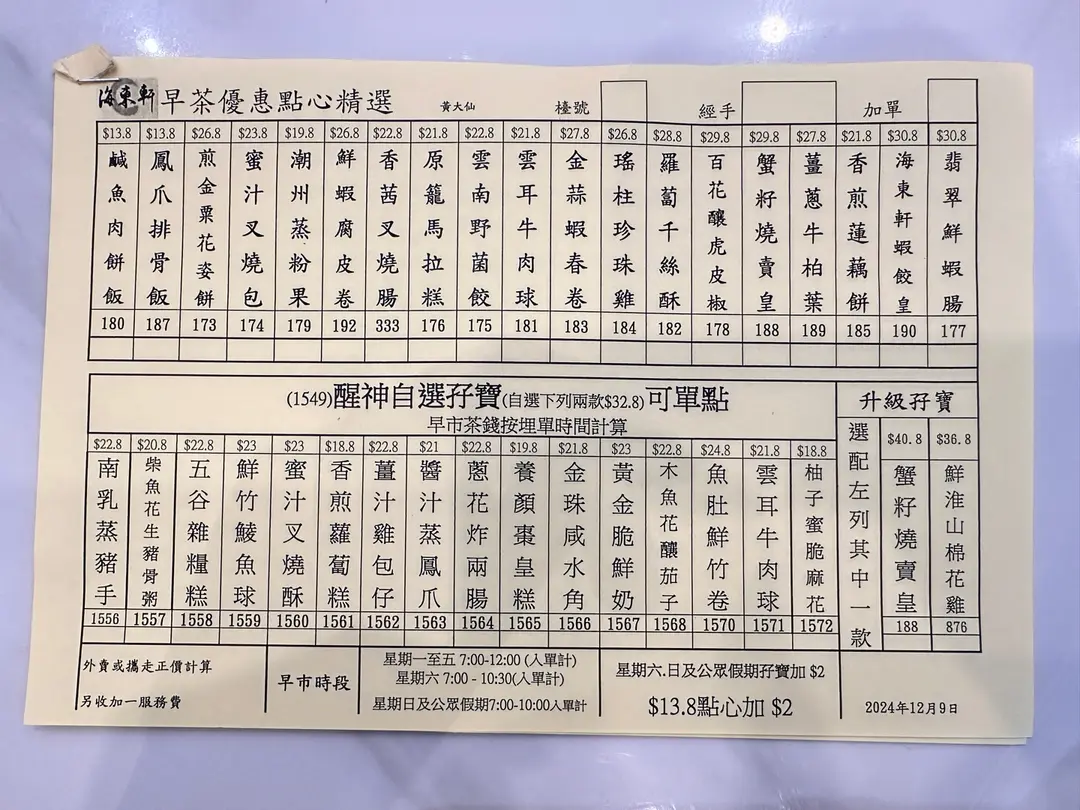 海東軒 早茶優惠點心精選 黃大仙 檯號 經手 加單
$13.8 $13.8 $26.8 $23.8 $19.8 $26.8 $22.8 $21.8 $22.8 $21.8 $27.8 $26.8 $28.8 $29.8 $29.8 $27.8 $21.8 $30.8 $30.8
鹹魚肉餅飯
鳳爪排骨飯
煎金粟花姿餅
蜜汁叉燒包
潮州蒸粉果
鮮蝦腐皮卷
香茜叉燒腸
原籠馬拉糕
雲南野菌餃
雲耳牛肉球
金蒜蝦春卷
瑤柱珍珠雞
羅蔔千絲酥
百花釀虎皮椒
蟹籽燒賣皇
薑蔥牛柏葉
香煎蓮藕餅
海東軒蝦餃皇
翡翠鮮蝦腸
180 187 173 174 179 192 333 176 175 181 183 184 182 178 188 189 185 190 177
(1549)醒神自選孖寶(自選下列兩款$32.8)可單點
早市茶錢按埋單時間計算
$22.8 $20.8 $22.8 $23 $23 $18.8 $22.8 $21 $22.8 $19.8 $21.8 $23 $22.8 $24.8 $21.8 $18.8
南乳蒸豬手
柴魚花生豬骨粥
五谷雜糧糕
鮮竹鯪魚球
蜜汁叉燒酥
香煎蘿蔔糕
薑汁雞包仔
醬汁蒸鳳爪
蔥花炸兩腸
養顏棗皇糕
金珠咸水角
黃金脆鮮奶
木魚花釀茄子
魚肚鮮竹卷
雲耳牛肉球
柚子蜜脆麻花
1556 1557 1558 1559 1560 1561 1562 1563 1564 1565 1566 1567 1568 1570 1571 1572
升級孖寶
選配左列其中一款
$40.8 $36.8
蟹籽燒賣皇
鮮淮山棉花雞
188 876
外賣或攜走正價計算
另收加一服務費
早市時段
星期一至五 7:00-12:00 (入單計)
星期六 7:00 - 10:30(入單計)
星期日及公眾假期7:00-10:00入單計
星期六.日及公眾假期孖寶加 $2
$13.8點心加 $2
2024年12月9日